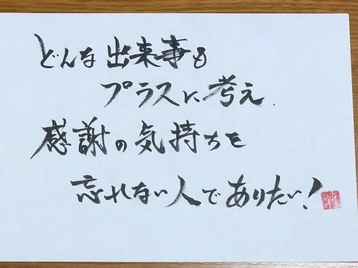 どんな出来事も
プラスに考え
感謝の気持ちを
忘れない人でありたい!